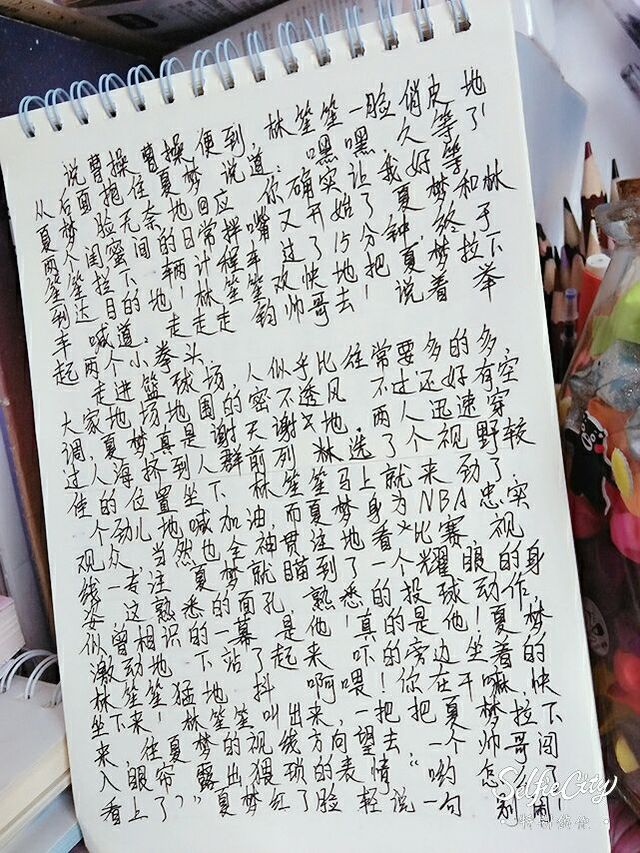 说曹操曹操便到,林笙笙一脸俏皮地
从后面抱住夏梦说道:嘿嘿,久等了!
夏梦一脸无奈地回应 你确实让我好等
两个闺蜜间的日常拌嘴又开始了 夏梦和林
笙笙拦下一辆计程车 过了15分钟,终于
到达目的地!林笙笙欢快地把夏梦拉下
车 喊道:走走走 钓帅哥去!说着 举
起两个小拳头.
走进篮球场,人似乎比往常要多的多,
大家把场地围的密不透风 不过还好有空
调,夏梦真是谢天谢地,两人迅速穿
过人海挤到人群前列 林选了个视野较
佳的位置坐下 林笙笙马上就来劲了
一个劲儿地喊加油,而夏梦身为NBA忠实
观众,当然也全神贯注地看着比赛,视
线一专注 夏梦就瞄到了一个耀眼的身
姿,这熟悉的面孔,熟悉的投球动作,
似曾相识的一幕 是他!真的是他!夏梦
激动地一下站了起来 吓的旁边坐着的
林笙笙猛地一抖 啊喂!你在干嘛,快
坐下来!林笙笙叫出来,一把把夏梦拉下
来,往夏梦的视线方向望去 一个帅哥闯
入眼帘 露出猥琐的表情“哟 怎
看上了?”夏梦红了脸 轻说一句 别闹!
SelfieCity